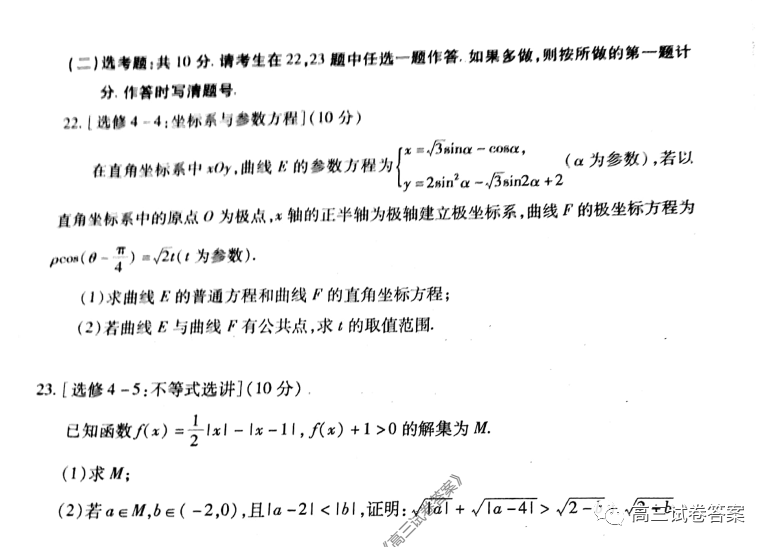 (二)选考题:共 10 分. 请考生在 22,23 题中任选一题作答. 如果多做,则按所做的第一题计
分. 作答时写清题号.
22. [选修 4-4:坐标系与参数方程](10 分)
在直角坐标系中 xOy,曲线 E 的参数方程为{x=√3sinα-cosα, y=2sin²α-√3sin2α+2 (α 为参数),若以
直角坐标系中的原点 O 为极点,x 轴的正半轴为极轴建立极坐标系,曲线 F 的极坐标方程为
ρcos(θ-π/4)=√2t(t 为参数).
(1)求曲线 E 的普通方程和曲线 F 的直角坐标方程;
(2)若曲线 E 与曲线 F 有公共点,求 t 的取值范围.
23. [选修 4-5:不等式选讲](10 分)
已知函数 f(x)=1/2|x|-|x-1|, f(x)+1>0 的解集为 M.
(1)求 M;
(2)若 a∈M,b∈(-2,0),且|a-2|<|b|,证明:√|a|+√|a-4|>√2-
√2+b
《高三试卷答案》
高三试卷答案